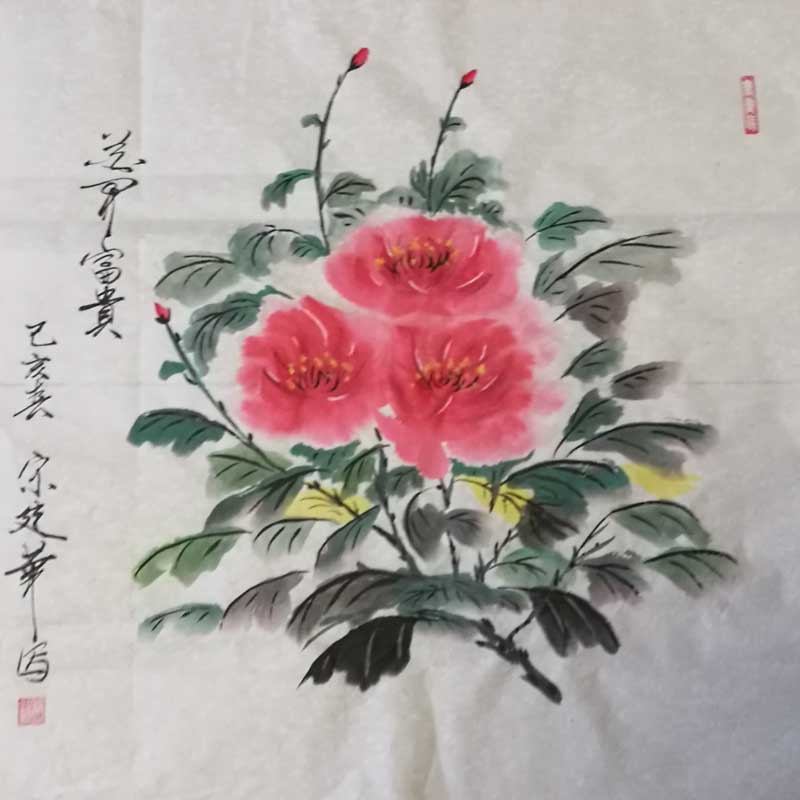 花开富貴
己亥春 宋廷華写